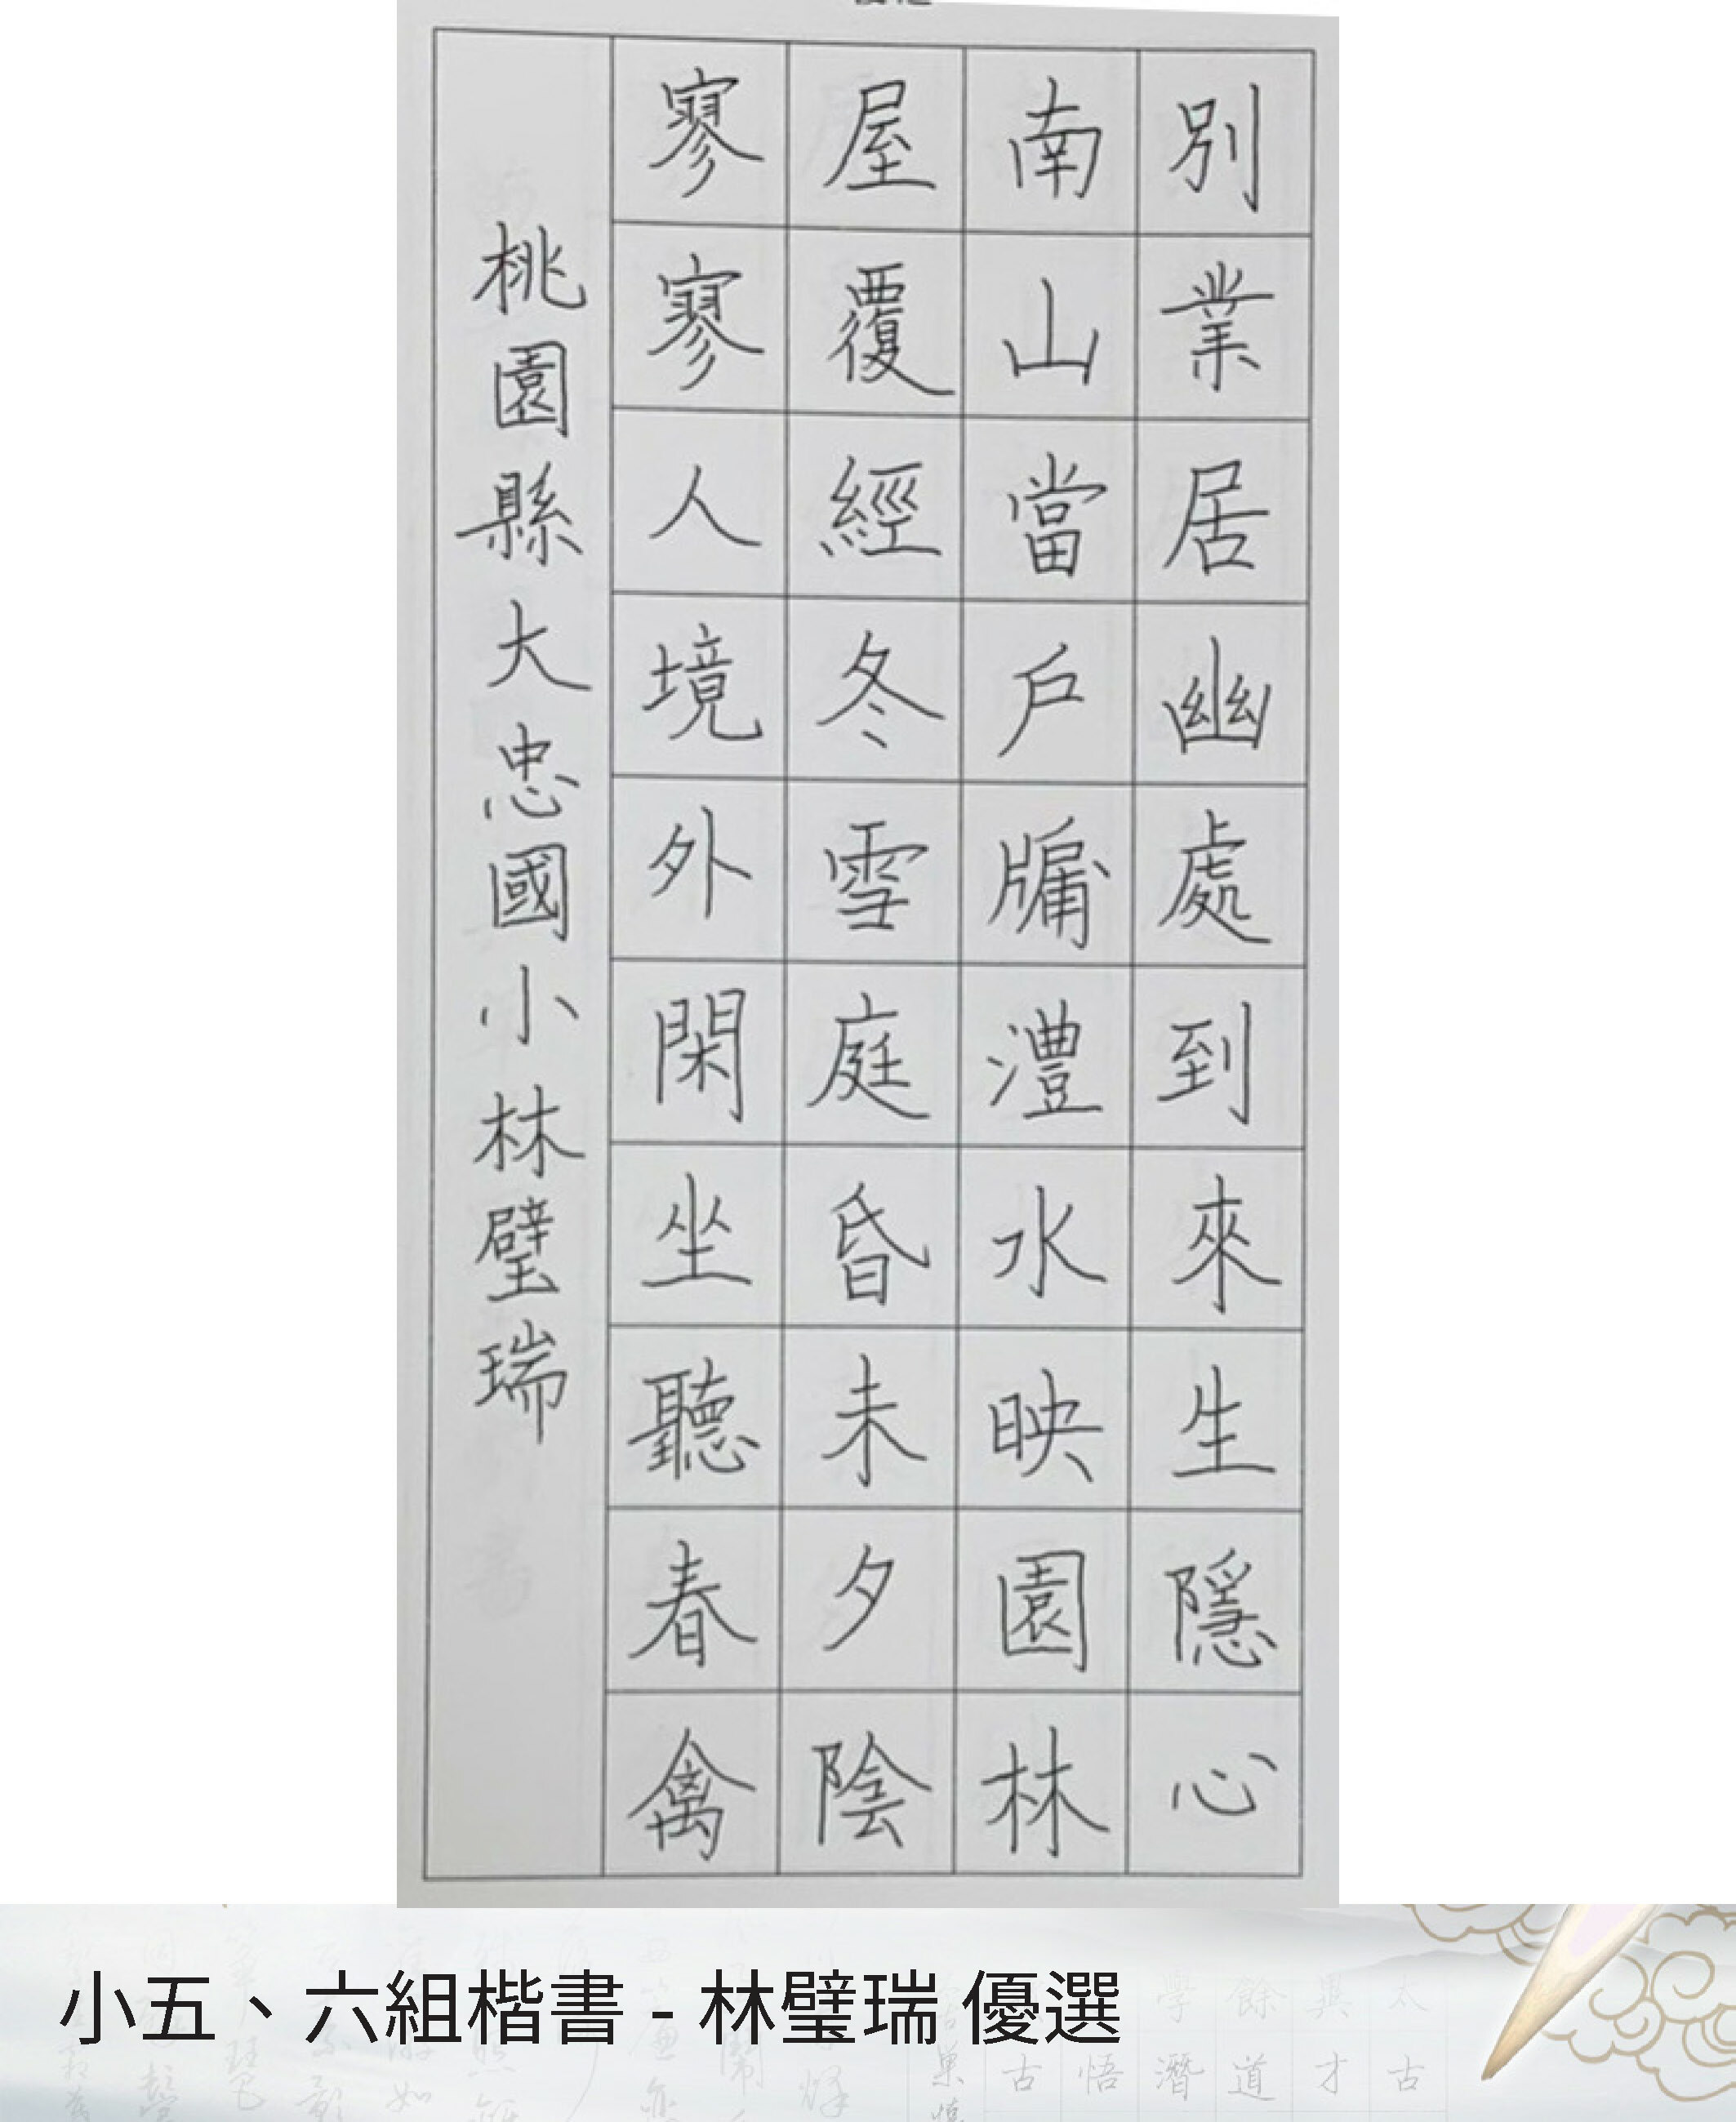 別業居幽處到來生隱心
南山當戶牖澧水映園林
屋覆經冬雪庭昏未夕陰
寥寥人境外閑坐聽春禽
桃園縣大忠國小林璧瑞
小五、六組楷書 - 林璧瑞 優選
學 餘 與 太
古 悟 潛 道 才 古